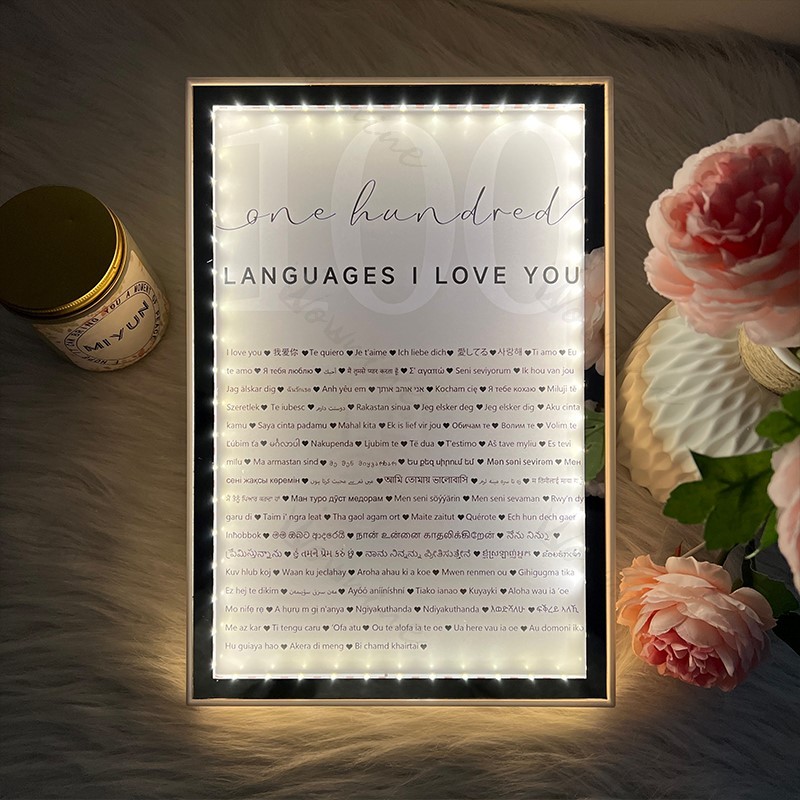 100
one hundred
LANGUAGES I LOVE YOU
I love you ♥ 我爱你 ♥ Te quiero ♥ Je t'aime ♥ Ich liebe dich ♥ 愛してる ♥ 사랑해 ♥ Ti amo ♥ Eu
te amo ♥ Я тебя люблю ♥ أحبك ♥ मैं तुमसे प्यार करता हूँ ♥ Σ' αγαπώ ♥ Seni seviyorum ♥ Ik hou van jou
Jag älskar dig ♥ ฉันรักเธอ ♥ Anh yêu em ♥ אני אוהב אותך ♥ Kocham cię ♥ Я тебе кохаю ♥ Miluji tě
Szeretlek ♥ Te iubesc ♥ دوستت دارم ♥ Rakastan sinua ♥ Jeg elsker deg ♥ Jeg elsker dig ♥ Aku cinta
kamu ♥ Saya cinta padamu ♥ Mahal kita ♥ Ek is lief vir jou ♥ Обичам те ♥ Волим те ♥ Volim te
Ľúbim ťa ♥ ♥ Nakupenda ♥ Ljubim te ♥ Të dua ♥ T'estimo ♥ Aš tave myliu ♥ Es tevi
mīlu ♥ Ma armastan sind ♥ მე შენ მიყვარხარ ♥ Ես քեզ սիրում եմ ♥ Mən səni sevirəm ♥ Мен
сені жақсы көремін ♥ ♥ আমি তোমায় ভালোবাসি ♥
♥ Ман туро дӯст медорам ♥ Men seni söýýärin ♥ Men seni sevaman ♥ Rwy'n dy
garu di ♥ Taim i' ngra leat ♥ Tha gaol agam ort ♥ Maite zaitut ♥ Quérote ♥ Ech hun dech gaer
Inħobbok ♥ මම ඔබට ආදරෙයි ♥ நான் உன்னை காதலிக்கிறேன் ♥ నేను నిన్ను
ప్రేమిస్తున్నాను ♥ હું તમને પ્રેમ કરું છું ♥ ನಾನು ನಿನ್ನನ್ನು ಪ್ರೀತಿಸುತ್ತೇನೆ ♥
Kuv hlub koj ♥ Waan ku jeclahay ♥ Aroha ahau ki a koe ♥ Mwen renmen ou ♥ Gihigugma tika
Ez hej te dikim ♥ ♥ Ayóó aníiníshní ♥ Tiako ianao ♥ Kuyayki ♥ Aloha wau iā 'oe
Mo nifẹ rẹ ♥ A hụrụ m gị n'anya ♥ Ngiyakuthanda ♥ Ndiyakuthanda ♥ እወድሻለሁ ♥
Me az kar ♥ Ti tengu caru ♥ 'Ofa atu ♥ Ou te alofa ia te oe ♥ Ua here vau ia oe ♥ Au domoni iko
Hu guiaya hao ♥ Akera di meng ♥ Bi chamd khairtai ♥
MIYUN